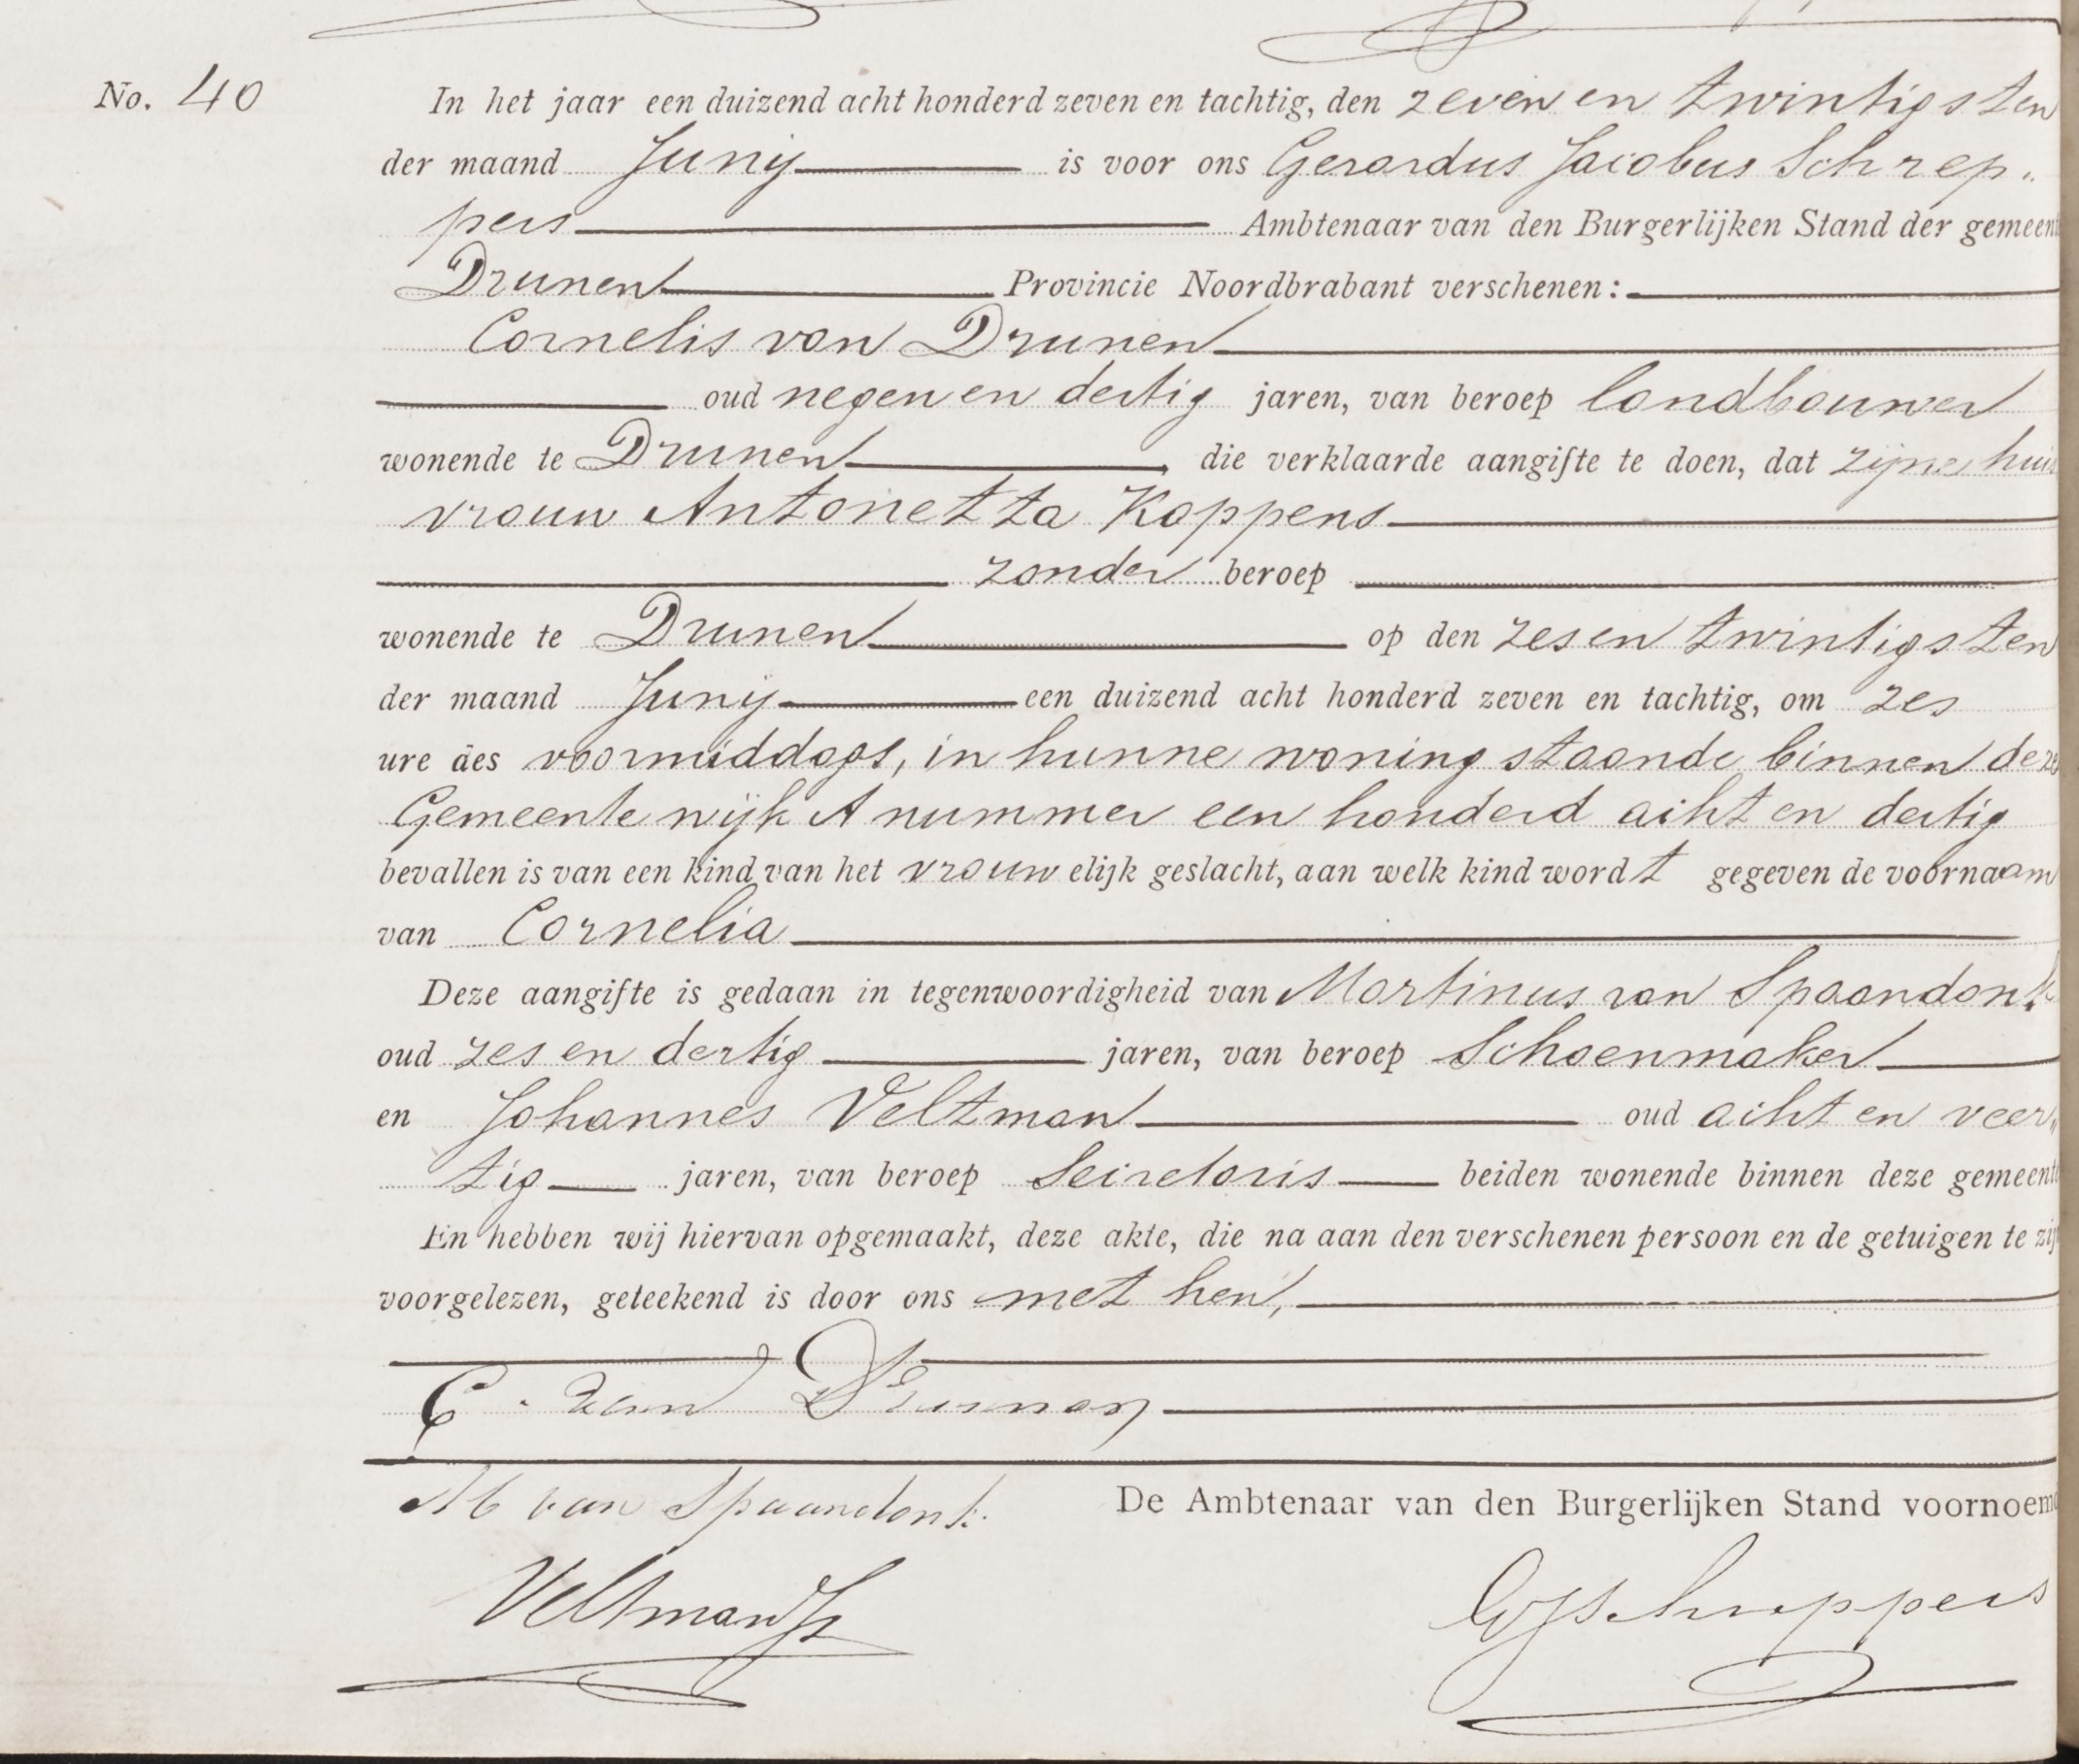 No. 40
In het jaar een duizend acht honderd zeven en tachtig, den zeven en twintigsten
der maand Junij is voor ons Gerardus Jacobus Schrep„
pers Ambtenaar van den Burgerlijken Stand der gemeent
Drunen Provincie Noordbrabant verschenen:
Cornelis van Drunen
oud negen en dertig jaren, van beroep landbouwer
wonende te Drunen, die verklaarde aangifte te doen, dat zijne huis
vrouw Antonetta Koppens
zonder beroep
wonende te Drunen op den zes en twintigsten
der maand Junij een duizend acht honderd zeven en tachtig, om zes
ure des voormiddags, in hunne woning staande binnen deze
Gemeente wijk A nummer een honderd acht en dertig
bevallen is van een kind van het vrouwelijk geslacht, aan welk kind wordt gegeven de voornaam
van Cornelia
Deze aangifte is gedaan in tegenwoordigheid van Martinus van Spaandonk
oud zes en dertig jaren, van beroep Schoenmaker
en Johannes Veltman oud acht en veer„
tig jaren, van beroep Secretaris beiden wonende binnen deze gemeente
En hebben wij hiervan opgemaakt, deze akte, die na aan den verschenen persoon en de getuigen te zijn
voorgelezen, geteekend is door ons met hen,
C. van Drunen
M van Spaandonk. De Ambtenaar van den Burgerlijken Stand voornoemd
Veltman Jz
GJSchreppers